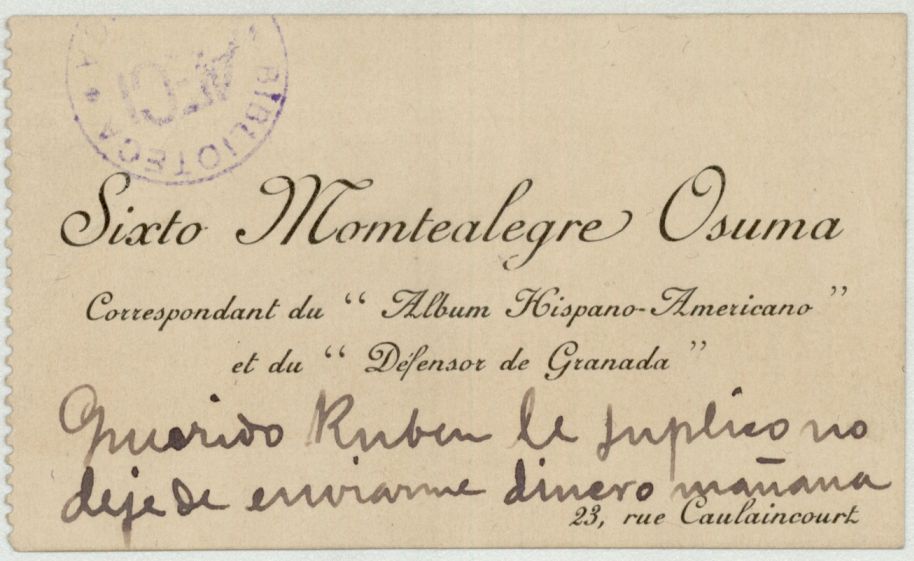 BIBLIOTECA
Sixto Momtealegre Osuma
Correspondant du “ Album Hispano-Americano ”
et du “ Défensor de Granada ”
Querido Ruben le suplico no
deje de enviarme dinero mañana
23, rue Caulaincourt